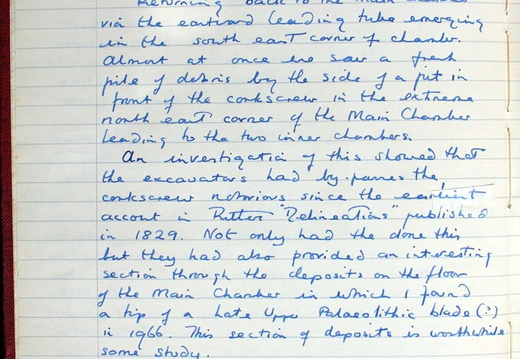 Returning back to the Main Chamber
via the eastward leading tube emerging
in the south east corner of chamber.
Almost at once we saw a fresh
pile of debris by the side of a pit in
front of the corkscrew in the extreme
north east corner of the Main Chamber
leading to the two inner chambers.
An investigation of this showed that
the excavators had by-passes the
corkscrew notorious since the earliest
account in Rutter "Delineations" published
in 1829. Not only had the done this
but they had also provided an interesting
section through the deposits on the floor
of the Main Chamber in which I found
a tip of a Late Upper Palaeolithic blade (?)
in 1966. This section of deposits is worthwhile
some study.